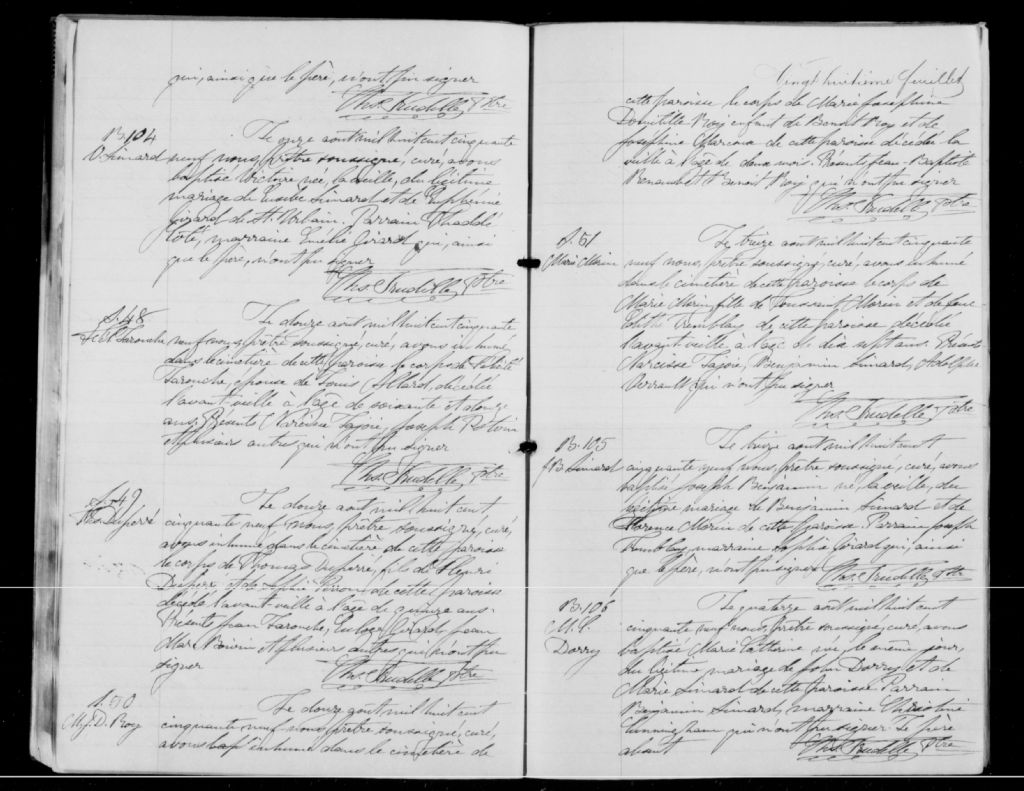 qui, ainsi que le père, n'ont pu signer
Ths. Trudelle Ptre
B. 104
V. Simard
Le onze août mil huit cent cinquante
neuf nous, prêtre soussigné, curé, avons
baptisé Victoire née, la veille, du légitime
mariage de Eusèbe Simard et de Euphémie
Girard de St. Urbain. Parrain Thaddé
Coté, marraine Emélie Girard qui, ainsi
que le père, n'ont pu signer
Ths. Trudelle, Ptre
S. 48
Larouche
Le douze août mil huit cent cinquante
neuf nous, prêtre soussigné, curé, avons inhumé
dans le cimetière de cette paroisse le corps de Félicité
Larouche, épouse de Louis Allard, décédée
l'avant-veille à l'âge de soixante et douze
ans. Présents Narcisse Lajoie, Joseph Potvin
et plusieurs autres qui n'ont pu signer
Ths. Trudelle, Ptre
S. 49
Ths. Duperré
Le douze août mil huit cent
cinquante neuf nous, prêtre soussigné, curé,
avons inhumé dans le cimetière de cette paroisse
le corps de Thomas Duperré, fils de Henri
Duperré, et de Sophie de cette paroisse
décédé l'avant-veille à l'âge de quinze ans.
Présents Jean Larouche, Euloge Girard, Jean
Marc Boivin et plusieurs autres qui n'ont pu
signer
Ths. Trudelle Ptre
S. 50
M. J. D. Roy
Le douze août mil huit cent
cinquante neuf nous, prêtre soussigné, curé,
avons bap inhumé dans le cimetière de
Vingt huitième feuillet
cette paroisse le corps de Marie Joséphine
Domitille Roy enfant de Benoit Roy et de
Joséphine Marcoux de cette paroisse décédée la
veille à l'âge de deux mois. Présents Jean-Baptiste
Renaud et Benoit Roy qui n'ont pu signer
Ths. Trudelle Ptre
S. 51
Marie Morin
Le treize août mil huit cent cinquante
neuf nous, prêtre soussigné, curé, avons inhumé
dans le cimetière de cette paroisse le corps de
Marie Morin fille de Toussaint Morin et de feue
Tremblay de cette paroisse décédée
l'avant veille à l'âge de dix sept ans. Présents
Narcisse Lajoie, Benjamin Simard, Adolphe
Perrault qui n'ont pu signer
Ths. Trudelle, Ptre
B. 105
J. B. Simard
Le treize août mil huit cent
cinquante neuf nous, prêtre soussigné, curé, avons
baptisé Joseph Benjamin né, la veille, du
légitime mariage de Benjamin Simard et de
Florence Morin de cette paroisse. Parrain Joseph
Tremblay, marraine Sophie Girard qui, ainsi
que le père, n'ont pu signer
Ths. Trudelle Ptre
B. 106
M. C.
Dorry
Le quatorze août mil huit cent
cinquante neuf nous, prêtre soussigné, curé, avons
baptisé Marie Catherine née, le même jour,
du légitime mariage de John Dorry et de
Marie Simard de cette paroisse Parrain
Benjamin Simard, marraine Christine
Cunningham qui n'ont pu signer. Le père
absent
Ths. Trudelle, Ptre